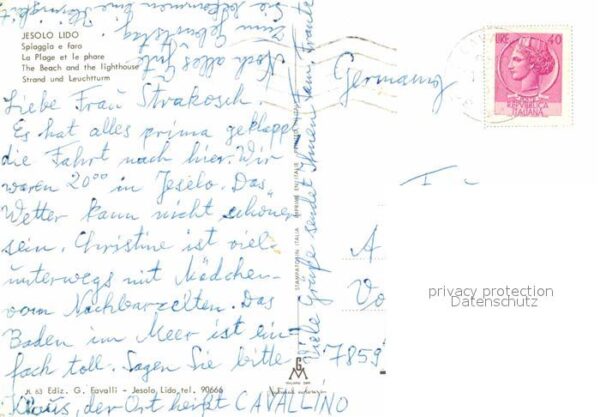 JESOLO LIDO
Spiaggia e faro
La Plage et le phare
The Beach and the lighthouse
Strand und Leuchtturm
Liebe Frau Strakosch.
Es hat alles prima geklappt
die Fahrt nach hier. Wir
waren 20⁰⁰ in Jeselo. Das
Wetter kann nicht schöner
sein. Christine ist viel
unterwegs mit Mädchen
vom Nachbarzelten. Das
Baden im Meer ist ein-
fach toll. Sagen Sie bitte
Klaus, der Ort heißt CAVALLINO
Viele Grüße sendet Ihnen Fam. Franke
Noch alles Gute
zum Geburtstag
Sie bekommen eine
Germany
LIRE 40
REPUBBLICA
ITALIANA
I
A
Vo
7859
privacy protection
Datenschutz
STAMPATO IN ITALIA
Jl. 63 Ediz. G. Favalli - Jesolo Lido, tel. 90666